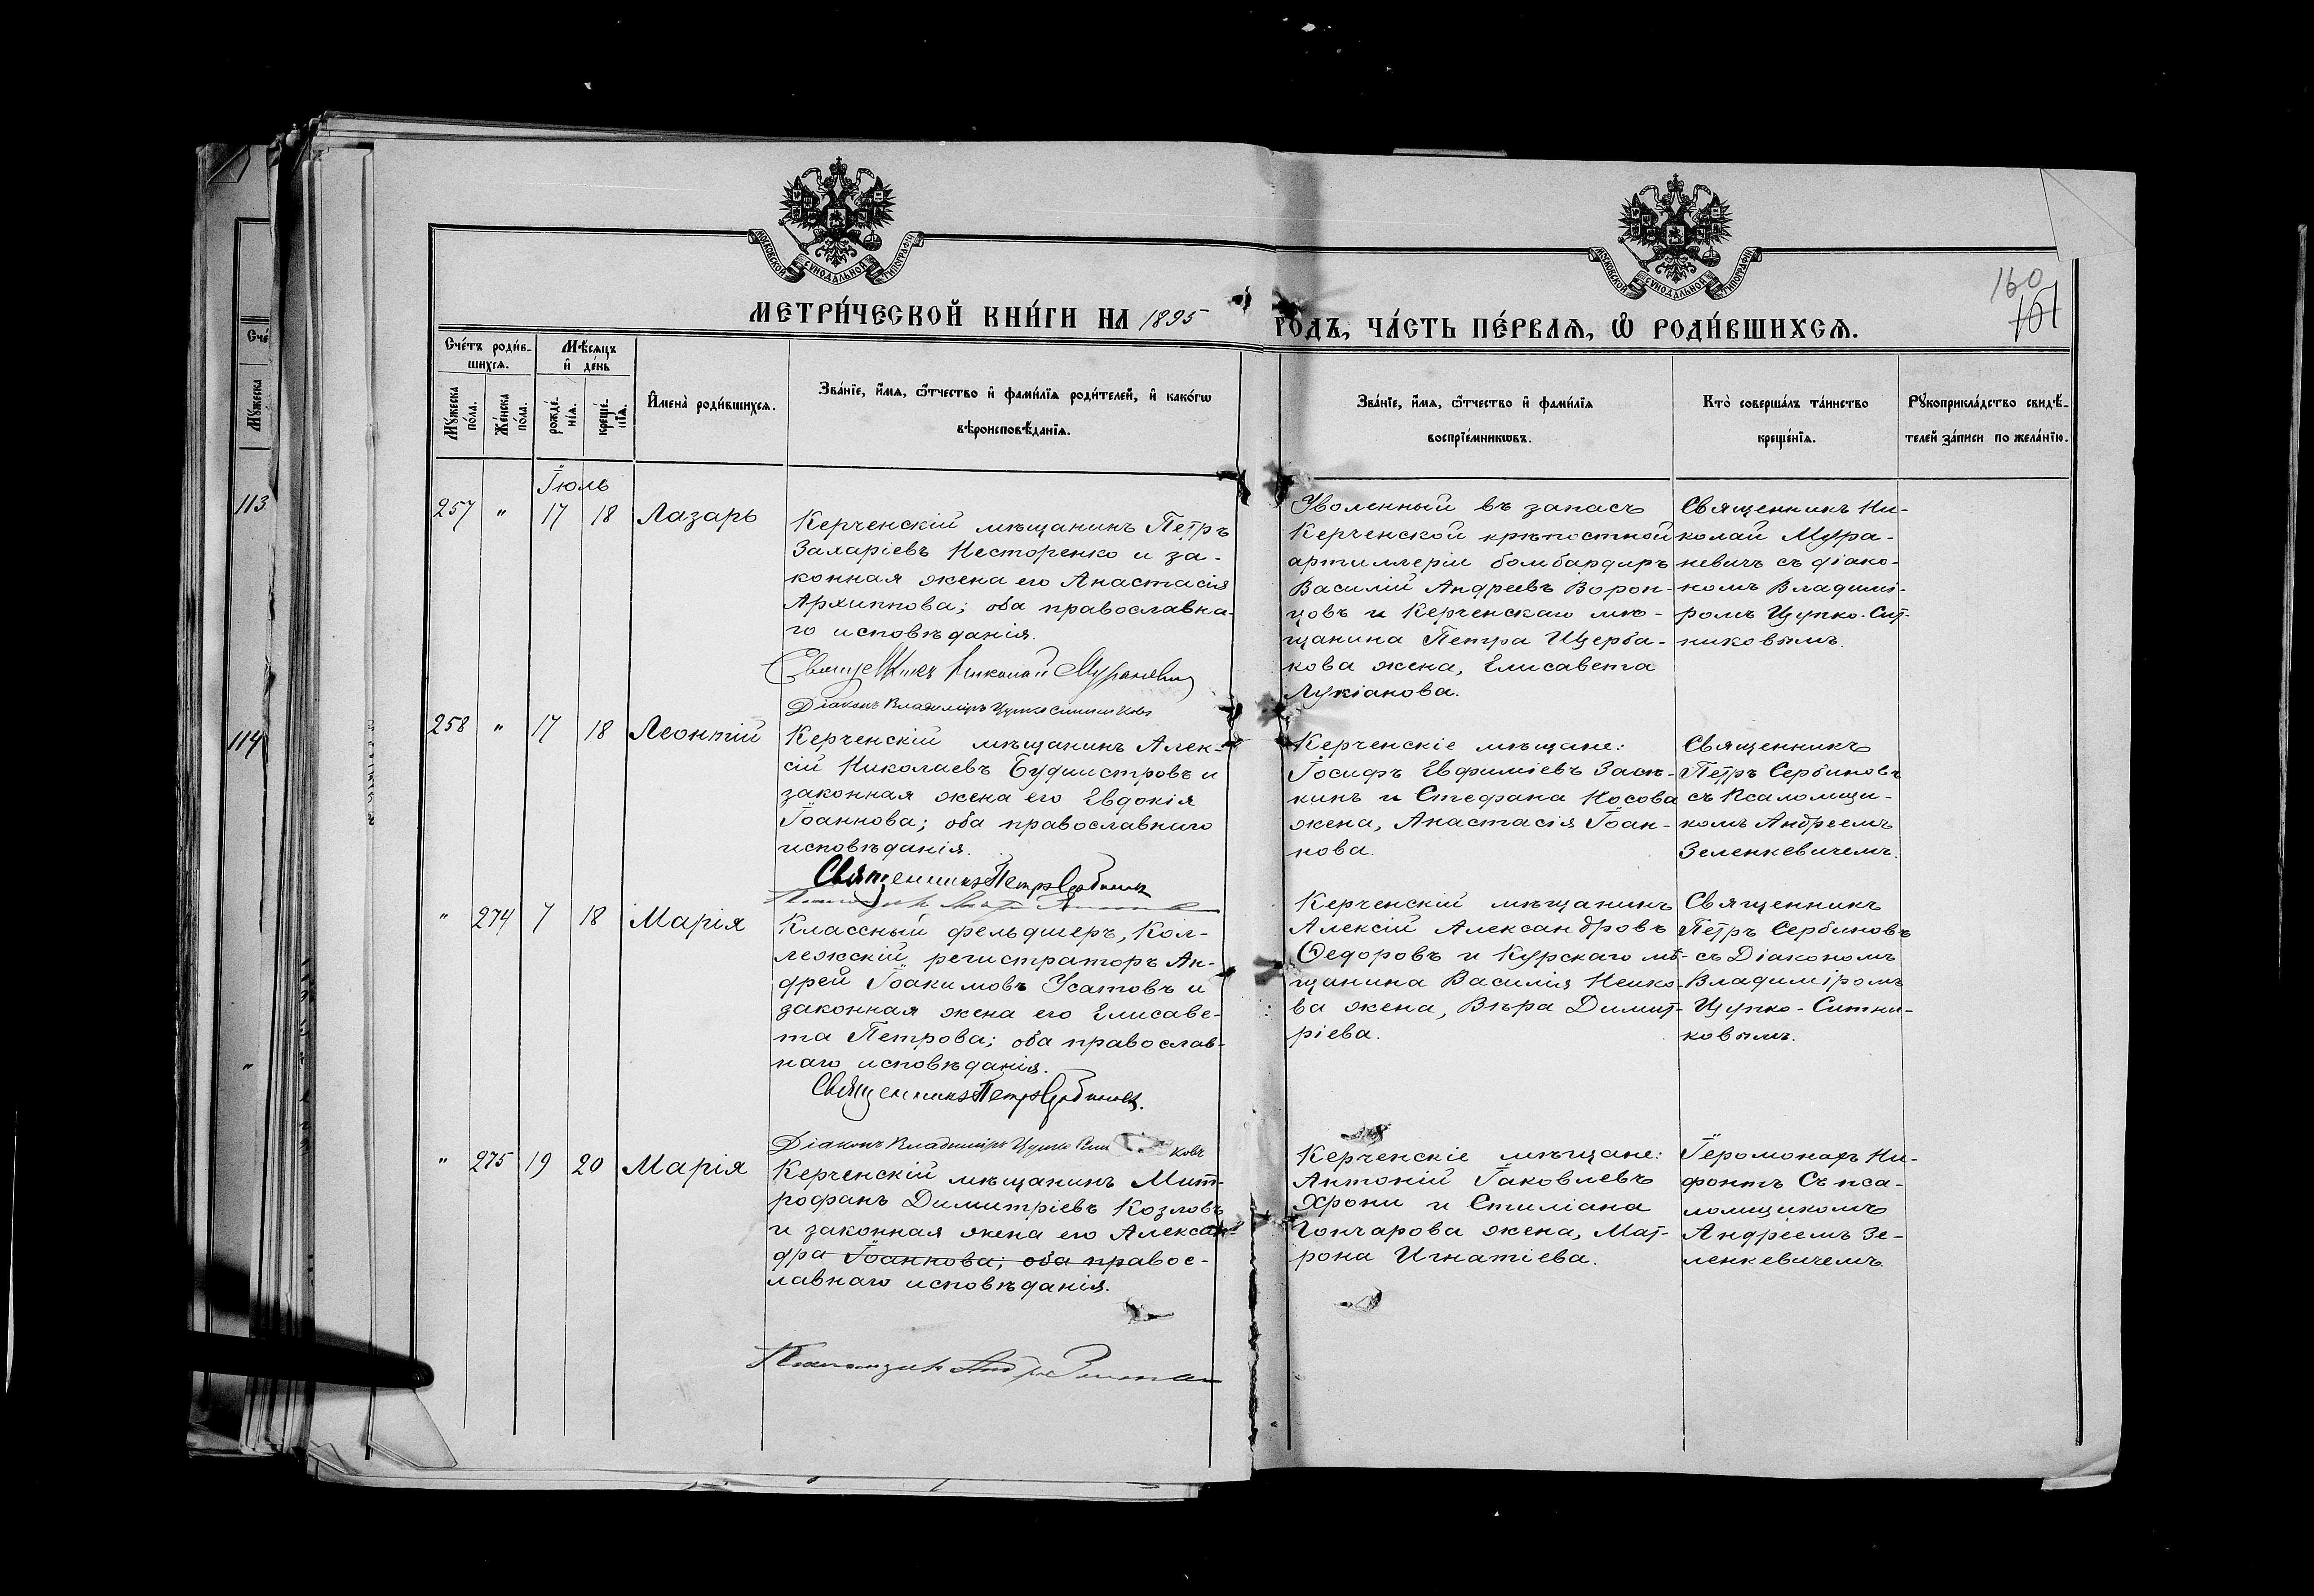 МОСКОВСКОЙ СУНОДАЛЬНОЙ ТИПОГРАФІИ
МОСКОВСКОЙ СУНОДАЛЬНОЙ ТИПОГРАФІИ
160
161
МЕТРИ́ЧЕСКОЙ КНИ́ГИ НА 1895 ГОДЪ, ЧА́СТЬ ПЕ́РВАЯ, Ѽ РОДИ́ВШИХСЯ.
Сче́тъ роди́в-
шихся.
Мѣсяцъ
и день
Мꙋжеска
по́ла.
Же́нска
по́ла.
рожде́-
нія.
креще́-
нія.
Имена̀ роди́вшихся.
Зва́ніе, и́мя, ѻ́тчество и фами́лія роди́телей, и како́гѡ
вѣроисповѣ́данія.
Зва́ніе, и́мя, ѻ́тчество и фами́лія
воспріе́мникѡвъ.
Кто̀ соверша́лъ та́инство
креще́нія.
Рꙋкоприкла́дство свидѣ́-
телей за́писи по жела́нію.
Сче
Мꙋжеска
113
114
"
Іюль
257 " 17 18 Лазарь
Керченскій мѣщанинъ Петръ
Захаріевъ Несторенко и за-
конная жена его Анастасія
Архиппова; оба православна-
го исповѣданія.
Священникъ Николай Мураневич
Діаконъ Владиміръ Цупко Ситниковъ
Уволенный въ запасъ
Керченской крѣпостной
артиллеріи бомбардиръ
Василій Андреевъ Ворон-
цовъ и Керченскаго мѣ-
щанина Петра Щерба-
кова жена, Елисавета
Лукіанова.
Священникъ Ни-
колай Мура-
невичъ съ діако-
номъ Владимі-
ромъ Цупко-Сит-
никовымъ.
258 " 17 18 Леонтій
Керченскій мѣщанинъ Алек-
сій Николаевъ Будмистровъ и
законная жена его Евдокія
Іоаннова; оба православнаго
исповѣданія.
Священникъ Петръ Сербиновъ
Керченскіе мѣщане:
Іосифъ Евфиміевъ Засѣ-
кинъ и Стефана Носова
жена, Анастасія Іоан-
нова.
Священникъ
Петръ Сербиновъ
съ Псаломщи-
комъ Андреемъ
Зеленкевичемъ.
" 274 7 18 Марія
Классный фельдшеръ, Кол-
лежскій регистраторъ Ан-
дрей Іоакимовъ Усатовъ и
законная жена его Елисаве-
та Петрова; оба православ-
наго исповѣданія.
Священникъ Петръ Сербиновъ.
Діаконъ Владиміръ Цупко Сит ковъ
Керченскій мѣщанинъ
Алексій Александровъ
Ѳедоровъ и Курскаго мѣ-
щанина Василія Неико-
ва жена, Вѣра Димит-
ріева.
Священникъ
Петръ Сербиновъ
съ Діакономъ
Владиміромъ
Цупко-Ситни-
ковымъ.
" 275 19 20 Марія
Керченскій мѣщанинъ Мит-
рофанъ Димитріевъ Козловъ
и законная жена его Алексан-
дра Іоаннова; оба правос-
лавнаго исповѣданія.
Керченскіе мѣщане:
Антоній Іаковлевъ
Хрони и Стиліана
Гончарова жена, Мат-
рона Игнатіева.
Іеромонахъ Ни-
фонтъ съ пса-
ломщикомъ
Андреемъ Зе-
ленкевичемъ.